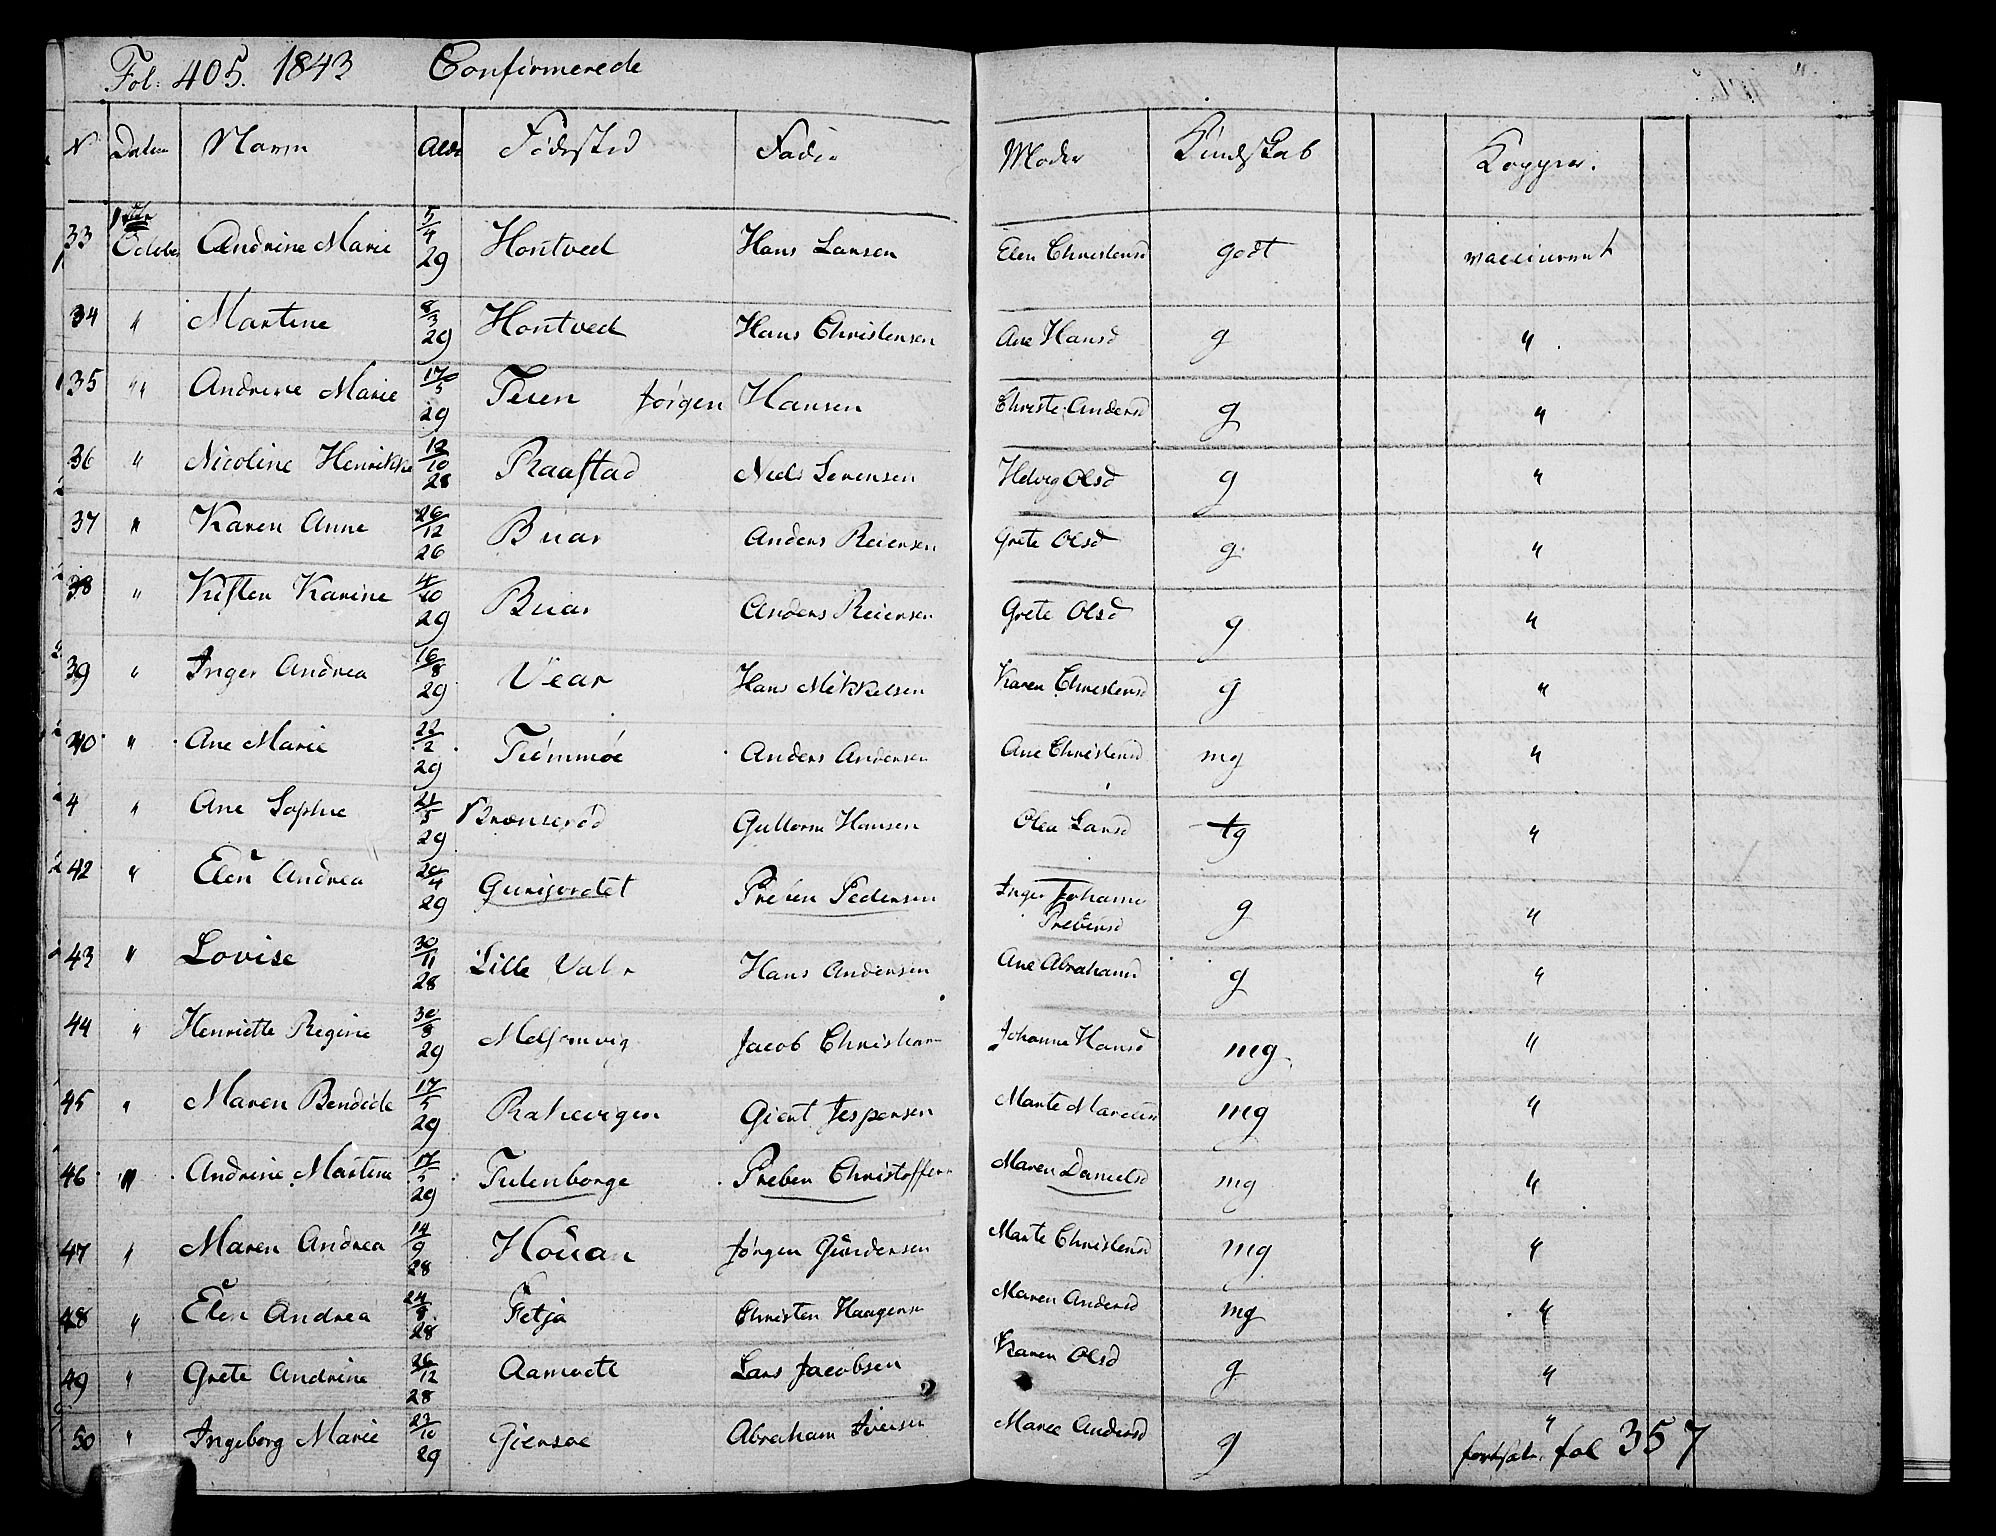 Fol: 405. 1843 Confirmerede
N Datum Navn Alder Fødested Fader Moder Kundskab Kopper.
33 1 October Andrine Marie 5/4 29 Hontved Hans Larsen Elen Christensd godt vaccineret
34 " Martine 8/3 29 Hontved Hans Christensen Ane Hansd g "
35 " Andrine Marie 17/5 29 Teien Jørgen Hansen Christe Andersd g "
36 " Nicoline Henrikke 12/10 28 Raastad Niels Sørensen Helvig Olsd g "
37 " Karen Anne 26/12 26 Buar Anders Reiersen Grete Olsd g "
38 " Kisten Karine 4/10 29 Buar Anders Reiersen Grete Olsd g "
39 " Inger Andrea 16/8 29 Vear Hans Mikkelsen Karen Christensd g "
40 " Ane Marie 22/2 29 Tiømmøe Anders Andersen Ane Christensd mg "
4 " Ane Sophie 21/5 29 Brønserød Gullorm Hansen Olea Larsd tg "
42 " Elen Andrea 20/4 29 Gurijordet Preben Pedersen Inger Johanne Prebensd g "
43 " Lovise 30/11 28 Lille Valø Hans Andersen Ane Abrahamsd g "
44 " Henriette Regine 30/8 29 Melsomvig Jacob Christian Johanne Hansd mg "
45 " Maren Bendicte 17/5 29 Rakevigen Giert Jespersen Marte Marcusd mg "
46 " Andrine Martine 17/5 29 Fulenborge Preben Christoffers Maren Danielsd mg "
47 " Maren Andrea 14/9 28 Houan Jørgen Gundersen Marte Christensd mg "
48 " Elen Andrea 24/8 28 Fetja Christen Haagens Maren Andersd mg "
49 " Grete Andrine 26/12 28 Aamodt Lars Jacobsen Karen Olsd g "
50 " Ingeborg Marie 23/10 29 Giersøe Abraham Iversen Maree Andersd g "
fortsat. fol 357